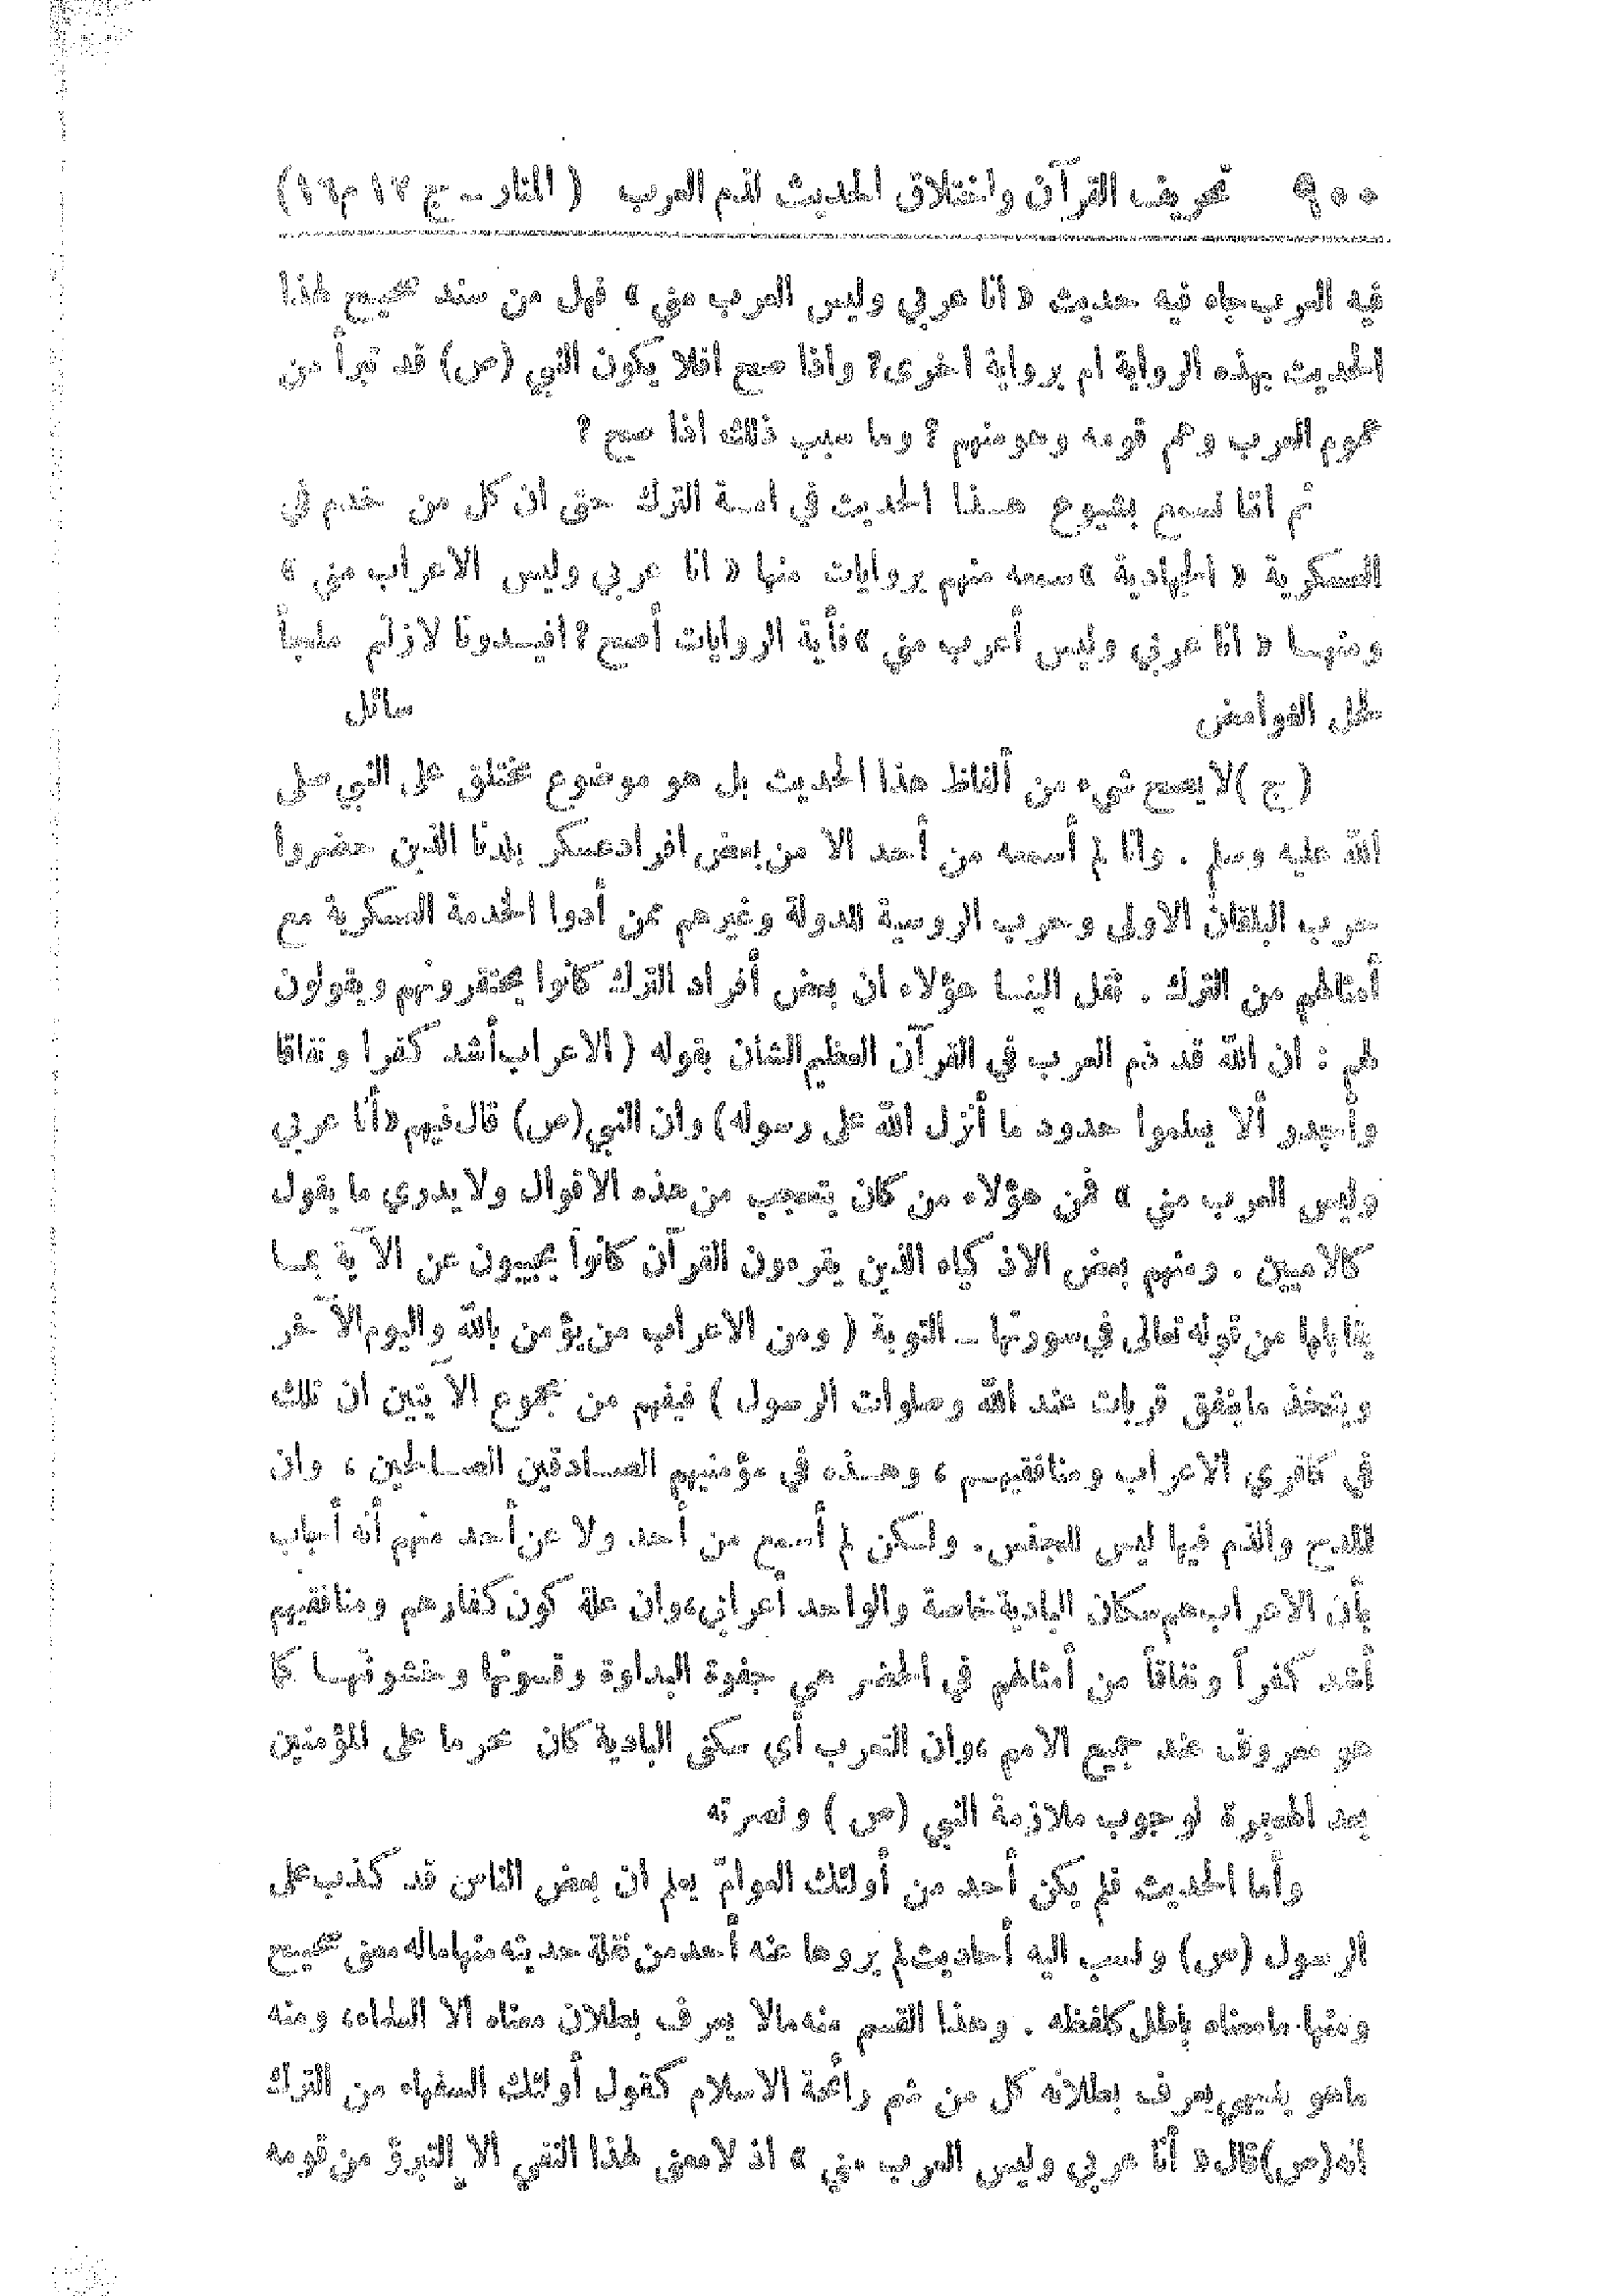 ٩٠٠ تحريف القرآن واختلاق الحديث لذم العرب ( المنار ــ ج ١٢ م ١٦ )
فيه العرب جاء فيه حديث « أنا عربي وليس العرب مني » فهل من سند صحيح لهذا
الحديث بهذه الرواية ام برواية اخرى؟ واذا صح افلا يكون النبي (ص) قد تبرأ من
عموم العرب وهم قومه وهو منهم ؟ وما سبب ذلك اذا صح ؟
ثم اننا نسمع بشيوع هذا الحديث في امة الترك حتى ان كل من خدم في
العسكرية « الجهادية » سمعه منهم بروايات منها « انا عربي وليس الاعراب مني »
ومنها « انا عربي وليس أعرب مني » فأية الروايات أصح؟ افيدونا لازلتم ملجأ
لحل الغوامض سائل
( ج ) لا يصح شيء من ألفاظ هذا الحديث بل هو موضوع مختلق على النبي صلى
الله عليه وسلم . وأنا لم أسمعه من أحد الا من بعض افراد عسكر بلدنا الذين حضروا
حرب البلقان الاولى وحرب الروسية للدولة وغيرهم ممن أدوا الخدمة العسكرية مع
أمثالهم من الترك . نقل الينا هؤلاء ان بعض أفراد الترك كانوا يحتقرونهم ويقولون
لهم : ان الله قد ذم العرب في القرآن العظيم الشان بقوله ( الاعراب أشد كفرا ونفاقا
وأجدر ألا يعلموا حدود ما أنزل الله على رسوله ) وان النبي (ص) قال فيهم « أنا عربي
وليس العرب مني » فمن هؤلاء من كان يتعجب من هذه الاقوال ولا يدري ما يقول
كالاميين . ومنهم بعض الاذكياء الذين يقرءون القرآن كانوا يجيبون عن الآية بما
يقابلها من قوله تعالى في سورتها ــ التوبة ( ومن الاعراب من يؤمن بالله واليوم الآخر
ويتخذ ما ينفق قربات عند الله وصلوات الرسول ) فيفهم من مجموع الآيتين ان تلك
في كافري الاعراب ومنافقيهم ، وهذه في مؤمنيهم الصادقين الصالحين ، وان
المدح والذم فيها ليس للجنس. ولكن لم أسمع من أحد ولا عن أحد منهم أنه أجاب
بأن الاعراب هم سكان البادية خاصة والواحد أعرابي، وان علة كون كفارهم ومنافقيهم
أشد كفراً ونفاقاً من أمثالهم في الحضر هي جفوة البداوة وقسوتها وخشونتها كما
هو معروف عند جميع الامم ، وان التعرب أي سكنى البادية كان محرما على المؤمنين
بعد الهجرة لوجوب ملازمة النبي (ص) ونصرته
وأما الحديث فلم يكن أحد من أولئك العوامّ يعلم ان بعض الناس قد كذب على
الرسول (ص) ونسب اليه أحاديث لم يروها عنه أحد من نقلة حديثه منها ماله معنى صحيح
ومنها ما معناه باطل كلفظه . وهذا القسم منه مالا يعرف بطلان معناه الا العلماء، ومنه
ماهو بديهي يعرف بطلانه كل من شم رائحة الاسلام كقول أولئك السفهاء من الترك
انه (ص) قال « أنا عربي وليس العرب مني » اذ لا معنى لهذا النفي الا التبرؤ من قومه